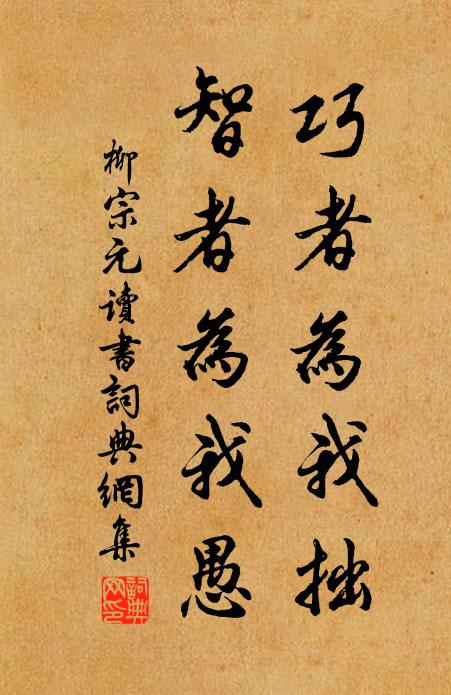 巧者為我拙
智者為我愚
柳宗元讀書詞典網集
詞典網印